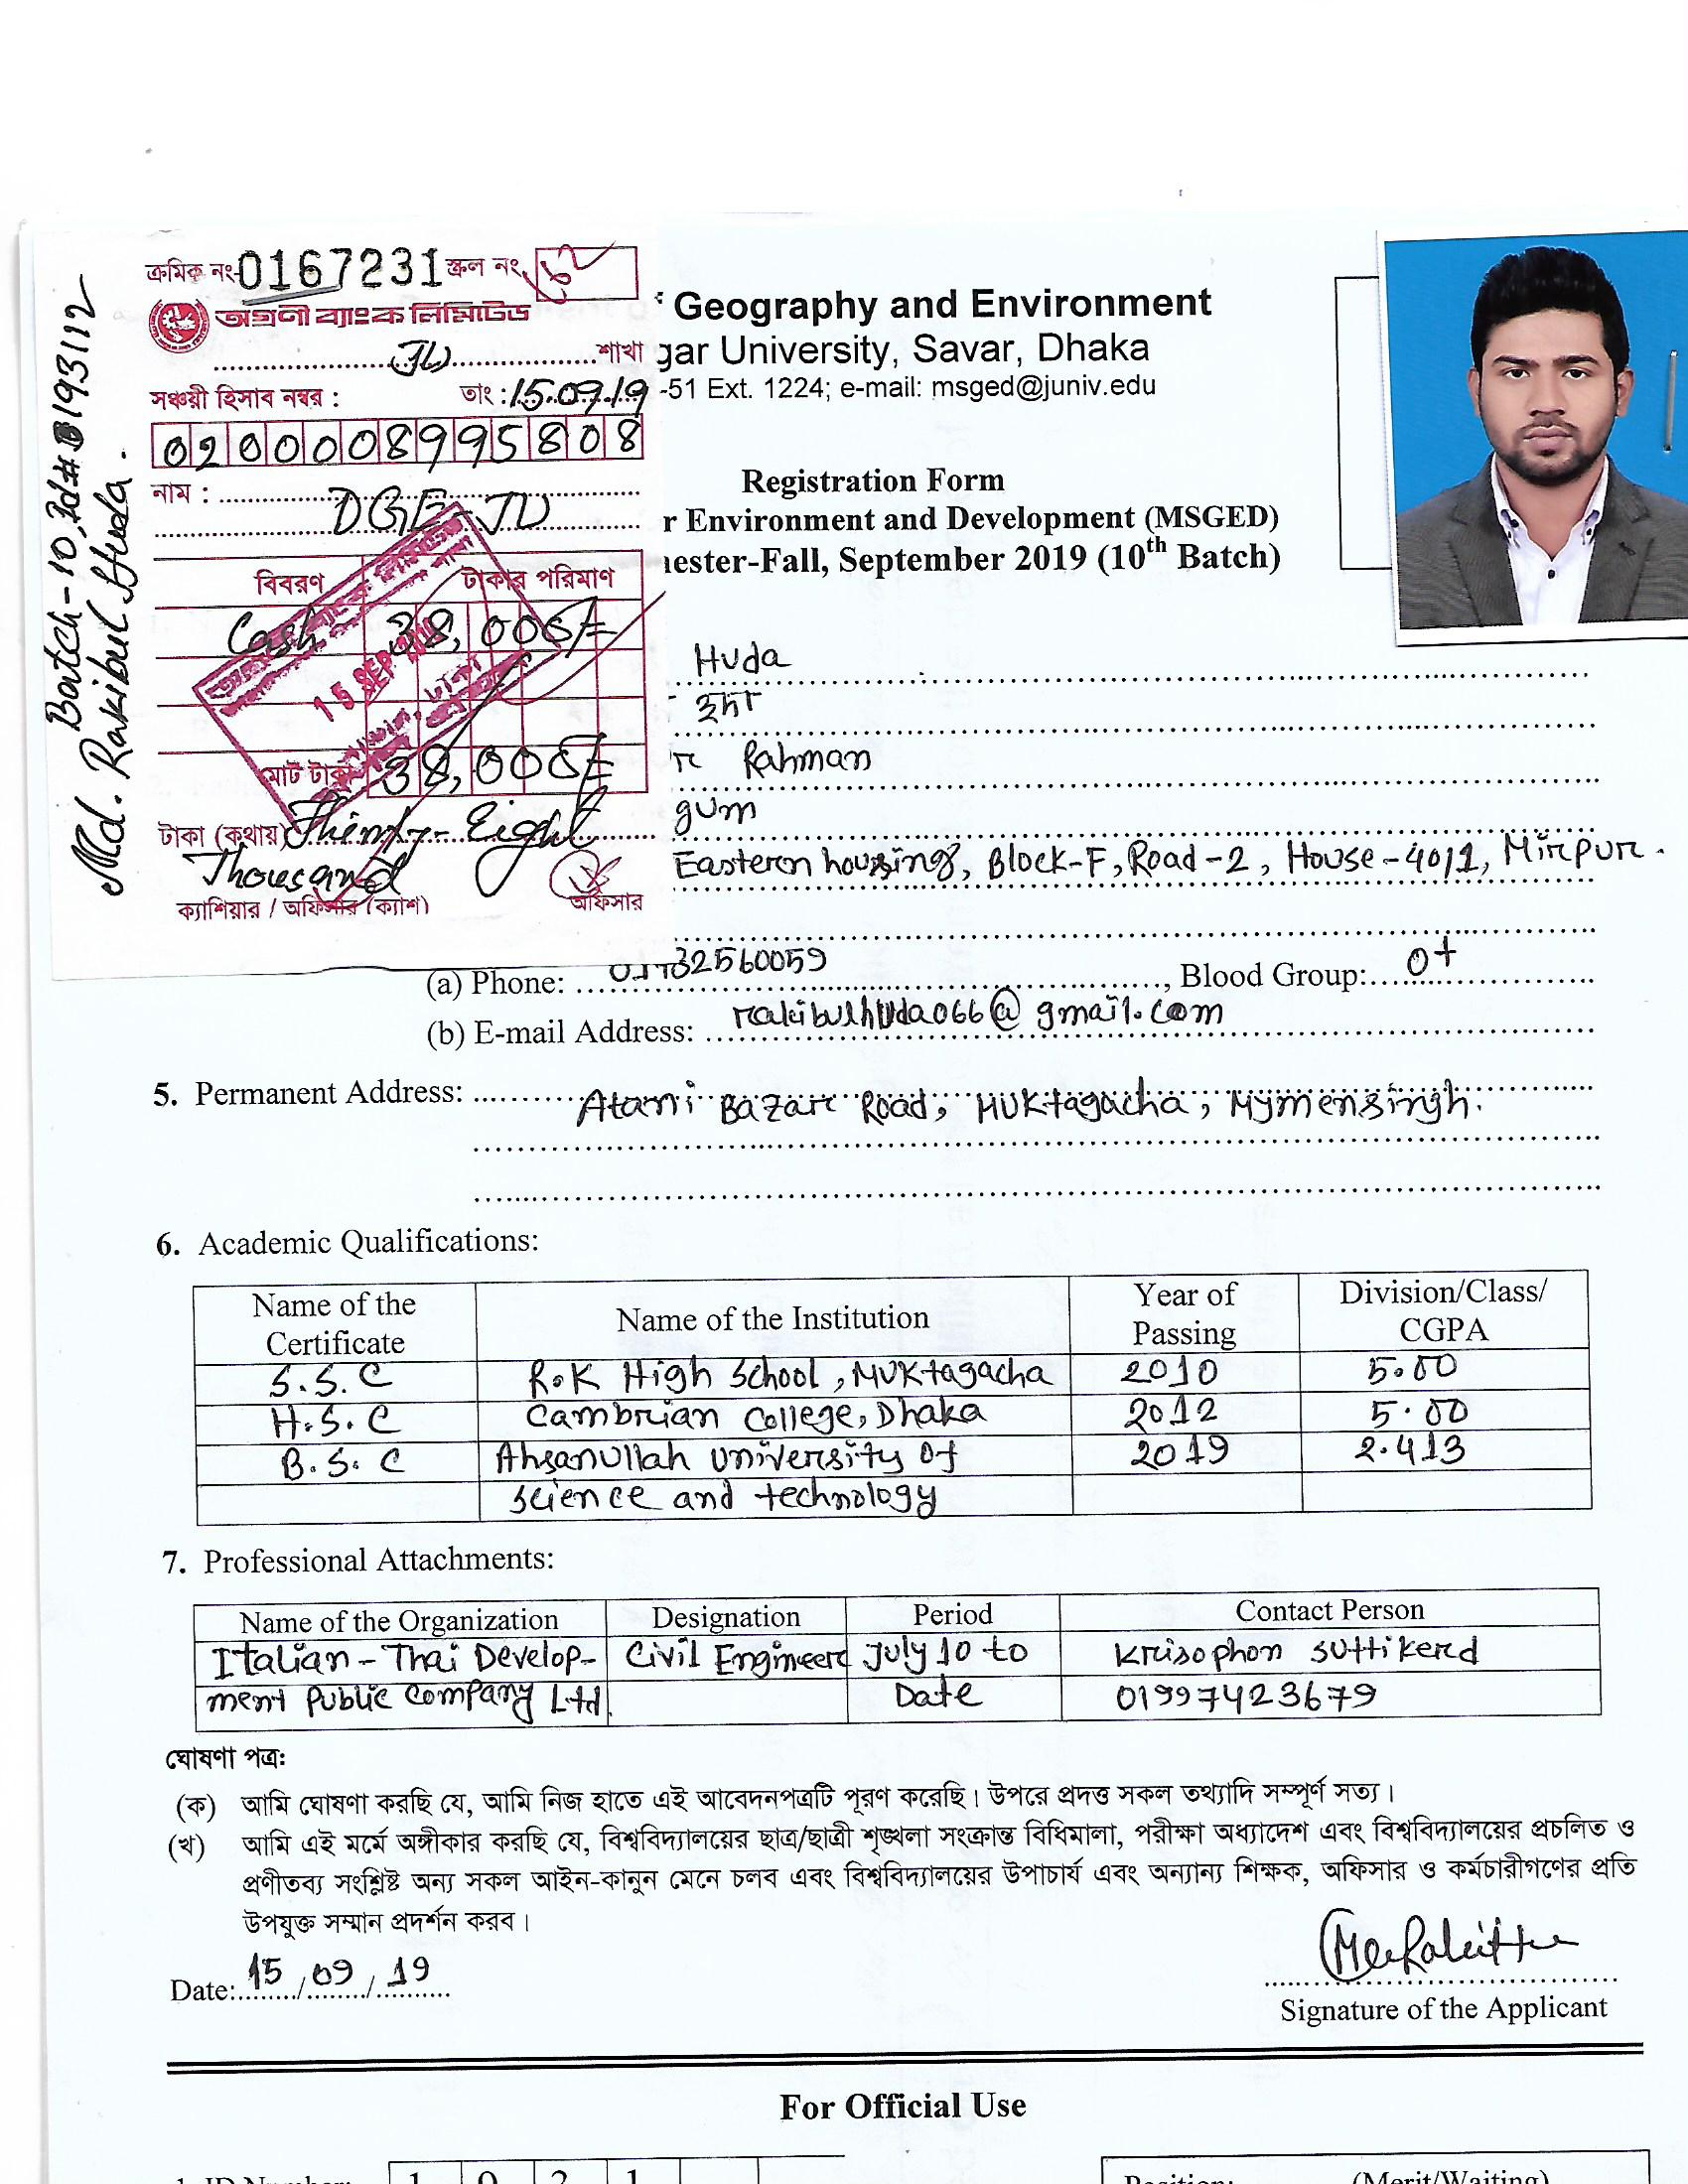 Batch-10, Id# B193112
Md. Rakibul Huda.
ক্রমিক নং- 0167231 স্ক্রল নং
অগ্রণী ব্যাংক লিমিটেড
JU শাখা
সঞ্চয়ী হিসাব নম্বর : তাং : 15.09.19
0200008995808
নাম :
DGE-JU
বিবরণ টাকার পরিমাণ
Cash 38,000/=
15 SEP 2019
মোট টাকা 38,000/=
টাকা (কথায়) Thirty-Eight
Thousand
ক্যাশিয়ার / অফিসার (ক্যাশ) অফিসার
Geography and Environment
gar University, Savar, Dhaka
-51 Ext. 1224; e-mail: msged@juniv.edu
Registration Form
r Environment and Development (MSGED)
ester-Fall, September 2019 (10th Batch)
Huda
হুদা
Rahman
gum
Eastern housing, Block-F, Road-2, House-40/1, Mirpur.
(a) Phone: 32560059, Blood Group: O+
(b) E-mail Address: rakibulhuda066@gmail.com
5. Permanent Address: Atani Bazar Road, Muktagacha, Mymensingh.
6. Academic Qualifications:
Name of the Certificate Name of the Institution Year of Passing Division/Class/CGPA
S.S.C R.K High School, Muktagacha 2010 5.00
H.S.C Cambrian College, Dhaka 2012 5.00
B.S.C Ahsanullah University of 2019 2.413
science and technology
7. Professional Attachments:
Name of the Organization Designation Period Contact Person
Italian-Thai Develop- Civil Engineer July 10 to Krisophon Suttikerd
ment Public Company Ltd. Date 01997423679
ঘোষণা পত্র:
(ক) আমি ঘোষণা করছি যে, আমি নিজ হাতে এই আবেদনপত্রটি পূরণ করেছি। উপরে প্রদত্ত সকল তথ্যাদি সম্পূর্ণ সত্য।
(খ) আমি এই মর্মে অঙ্গীকার করছি যে, বিশ্ববিদ্যালয়ের ছাত্র/ছাত্রী শৃঙ্খলা সংক্রান্ত বিধিমালা, পরীক্ষা অধ্যাদেশ এবং বিশ্ববিদ্যালয়ের প্রচলিত ও
প্রণীতব্য সংশ্লিষ্ট অন্য সকল আইন-কানুন মেনে চলব এবং বিশ্ববিদ্যালয়ের উপাচার্য এবং অন্যান্য শিক্ষক, অফিসার ও কর্মচারীগণের প্রতি
উপযুক্ত সম্মান প্রদর্শন করব।
Date: 15/09/19
Signature of the Applicant
For Official Use